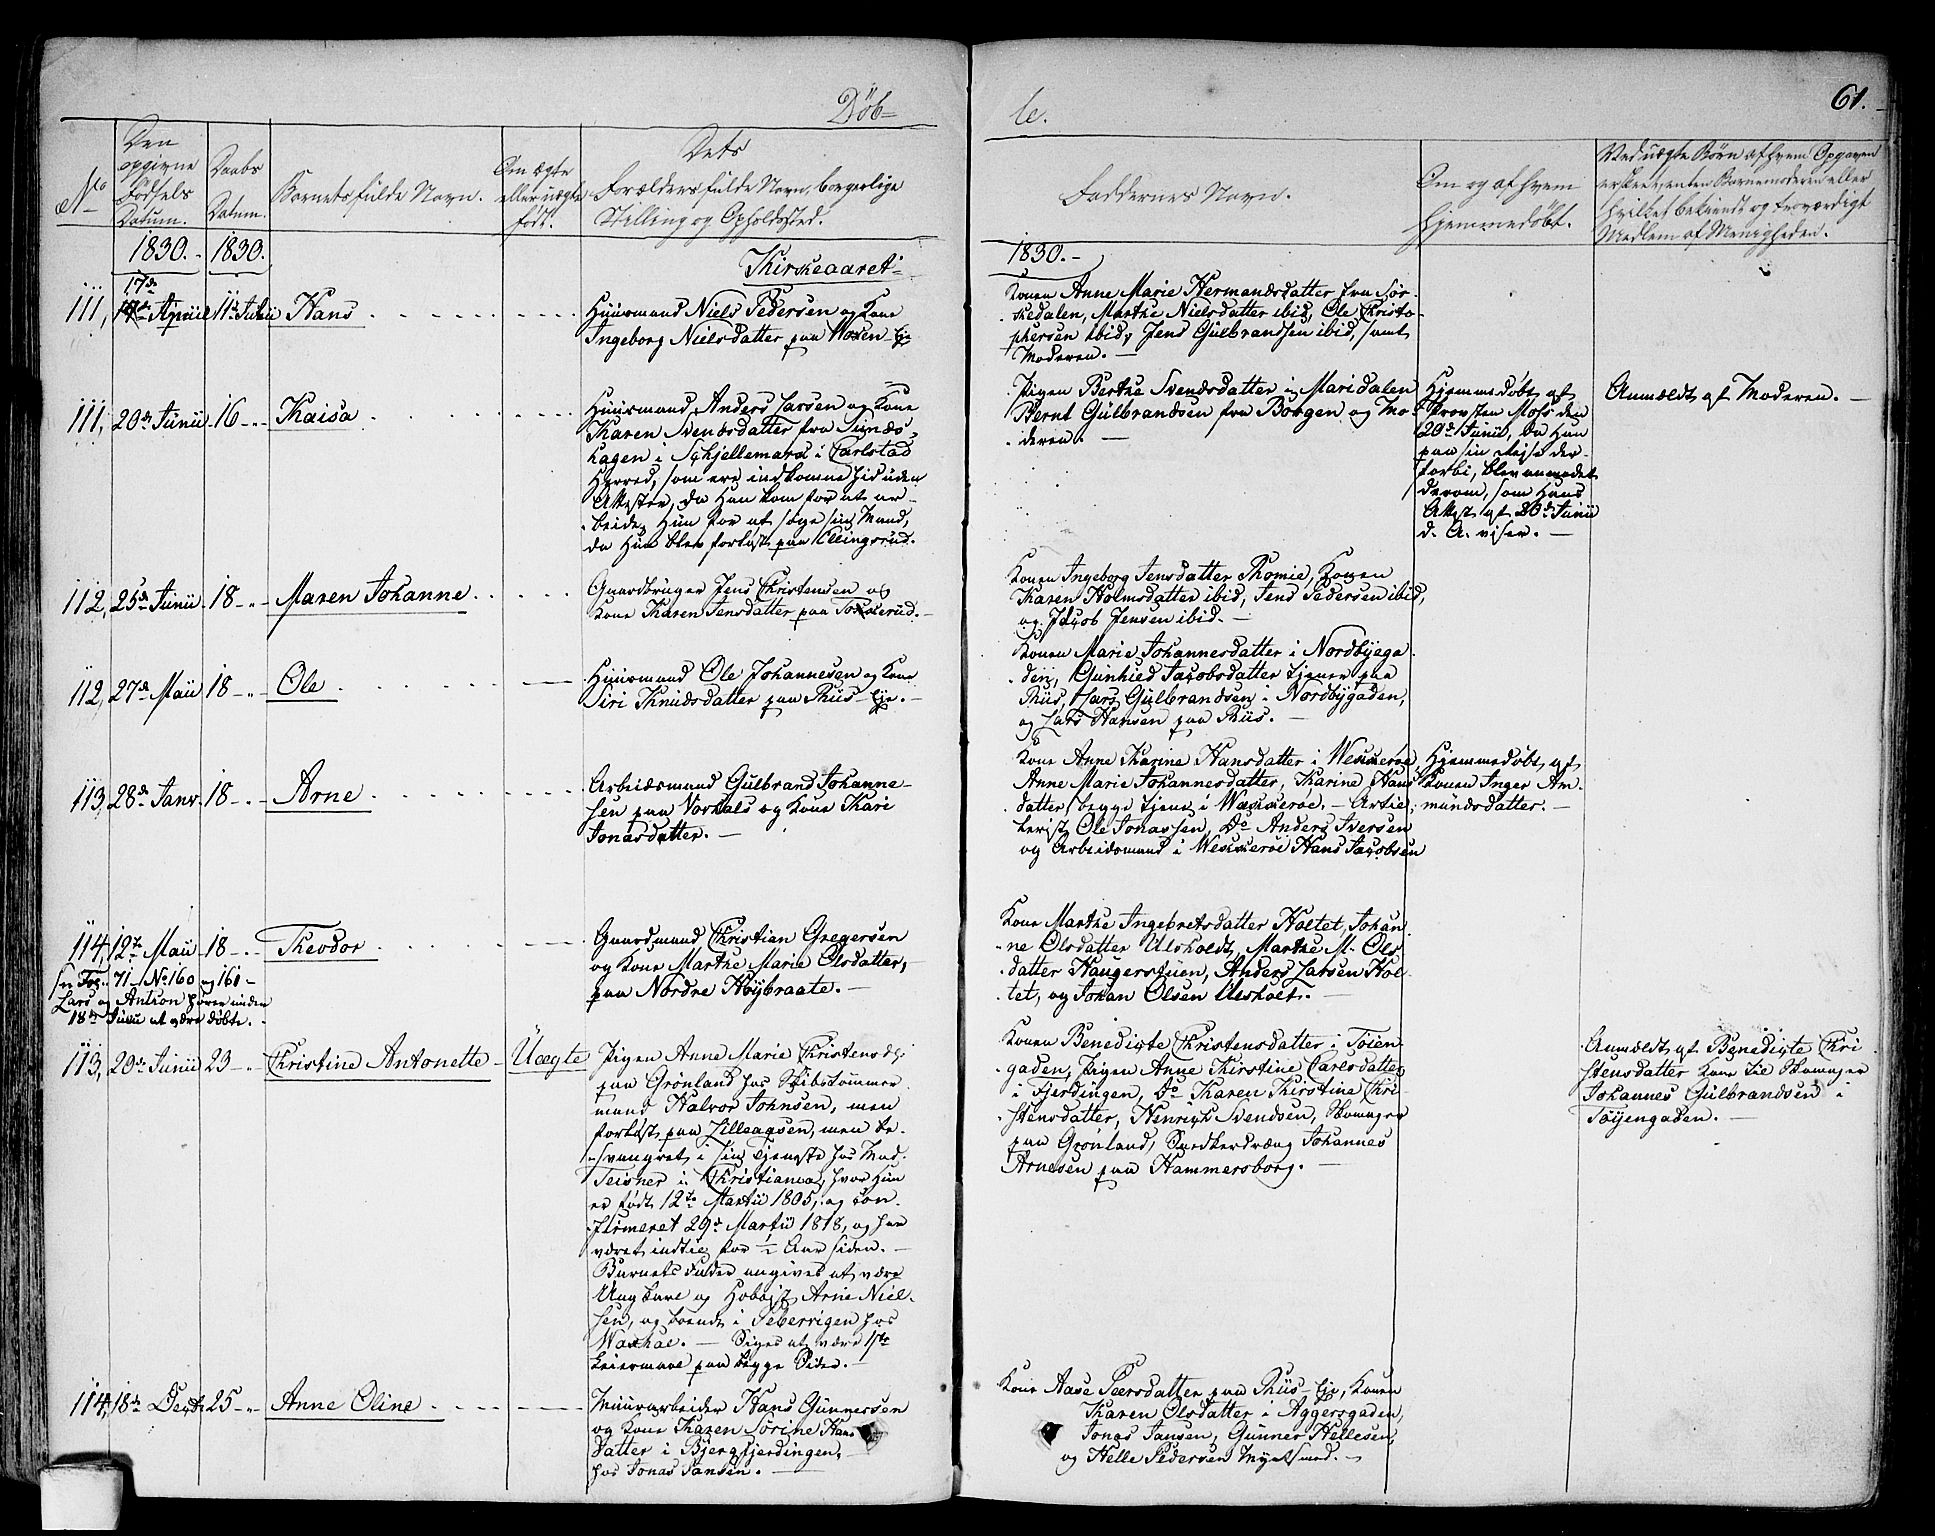 Döb-
le.
61.
No
Den opgivne Födsels Datum.
Daabs Datum.
Barnets fulde Navn.
Om ægte eller uægte födt.
Dets Forældres fulde Navn, borgerlige Stilling og Opholdssted.
Faddernes Navn.
Om og af hvem Hjemmedöbt.
Ved uægte Börn af hvem Opgaven er skeet, enten Barnemoderen eller hvilket bekiendt og troværdigt Medlem af Menigheden.
1830.-
1830.
Kirkeaaret
1830.-
111,
17de April
11te Julii
Hans
Huusmand Niels Pedersen og Kone
Ingeborg Nielsdatter paa Woxen-Eje
Konen Anne Marie Hermandsdatter fra Sör-
kedalen, Marthe Nielsdatter ibid, Ole Christo-
phersen ibid, Jens Gulbrandsen ibid, samt
Moderen.-
111,
20de Junii
16
Kaisa
Huusmand Anders Larsen og Kone
Karen Svendsdatter fra
hagen i Schjellemark i Carlstad
Herred, som ere indkomne hid uden
Attester, da Han kom for at ar-
beide, Hun for at søge sin Mand,
da Hun blev forløst paa Ellingsrud.
Pigen Berthe Svendsdatter i Maridalen
Bernt Gulbrandsen fra Borgen og Mo-
deren.-
Hjemmedöbt af
Provsten Moss den
20de Junii, da Han
paa sin Rejse der-
forbi, blev anmodet
derom, som Hans
Attest af 20de Junii
d. A. viser.-
Anmeldt af Moderen.-
112,
25de Junii
18
Maren Johanne
Gaardbruger Jens Christensen og
Kone Karen Jensdatter paa
Konen Ingeborg Jensdatter Thomie, Konen
Karen Holmsdatter ibid, Jens Pedersen ibid,
og Jacob Jensen ibid.-
112,
27de Maii
18
Ole
Huusmand Ole Johannesen og Kone
Siri Knudsdatter paa Riis-Eje.-
Konen Marie Johannesdatter i Nordbyega-
den, Gunhild Jacobsdatter tjener paa
Riis, Lars Gulbrandsen i Nordbygaden,
og Lars Hansen paa Riis.-
113,
28de Janr.
18
Arne
Arbeidsmand Gulbrand Johanne-
sen paa Vorhals og Kone Kari
Jonasdatter.-
Kone Anne Karine Hansdatter i Wækkeröe,
Anne Marie Johannesdatter, Karine Hans-
datter, begge tjene i Wækkeröe.- Artie-
lerist Ole Jonassen, Do Anders Iversen
og Arbeidsmand i Wækkeröe Hans Jacobsen
Hjemmedöbt af
Konen Inger Am-
mundsdatter.-
114,
12te Maii
18
Theodor
Gaardmand Christian Gregersen
og Kone Marthe Marie Olsdatter,
paa Nordre Höybraate.-
Kone Marthe Ingebretsdatter Holtet, Johan-
ne Olsdatter Ulsholdt, Marthe M. Ols-
datter Haugerstuen, Anders Larsen Hol-
tet, og Johan Olsen Ulsholt.-
See Fol. 71 No 160 og 161-
Lars og Antron hører under
18de Junii at være döbte.-
113,
20de Junii
23
Christine Antonette
Uægte
Pigen Anne Marie Christensd.
paa Grönland hos Skibstömmer-
mand Halvor Johnsen, men
forløst paa Lilleagsen, men be-
svangret i sin Tjeneste hos Mad.
Teisner i Christiania, hvor Hun
er födt 12te Martii 1805, og con-
firmeret 29de Martii 1818, og har
været indtil for ½ Aar siden.-
Barnets Fader angives at være
Ungkarl og Hoboist Arne Niel-
sen, og boende i Teberrigen hos
Waxhal.- Siges at være 1ste
Leiermaal paa begge Sider.-
Konen Benedigte Christensdatter i Töien-
gaden, Pigen Anne Kirstine Carlsdatter
i Fjerdingen, Do Karen Kirstine Chri-
stensdatter, Henrich Svendsen, Skomager
paa Grönland, Snedkerdræng Johannes
Arnesen paa Hammersborg.-
Anmeldt af Benedigte Chri-
stensdatter Kone til Skomager
Johannes Gulbrandsen i
Töyengaden.-
114,
18de Decbr
25
Anne Oline
Muurarbeider Hans Gunnersen
og Kone Karen Sorine Hans-
datter i Bjergfjerdingen,
hos Jonas Jansen.-
Kone Aase Peersdatter paa Riis-Eje, Konen
Karen Olsdatter i Aggersgaden,
Jonas Jansen, Gunner Hellesen,
og Helle Pedersen Myhlsmed.-